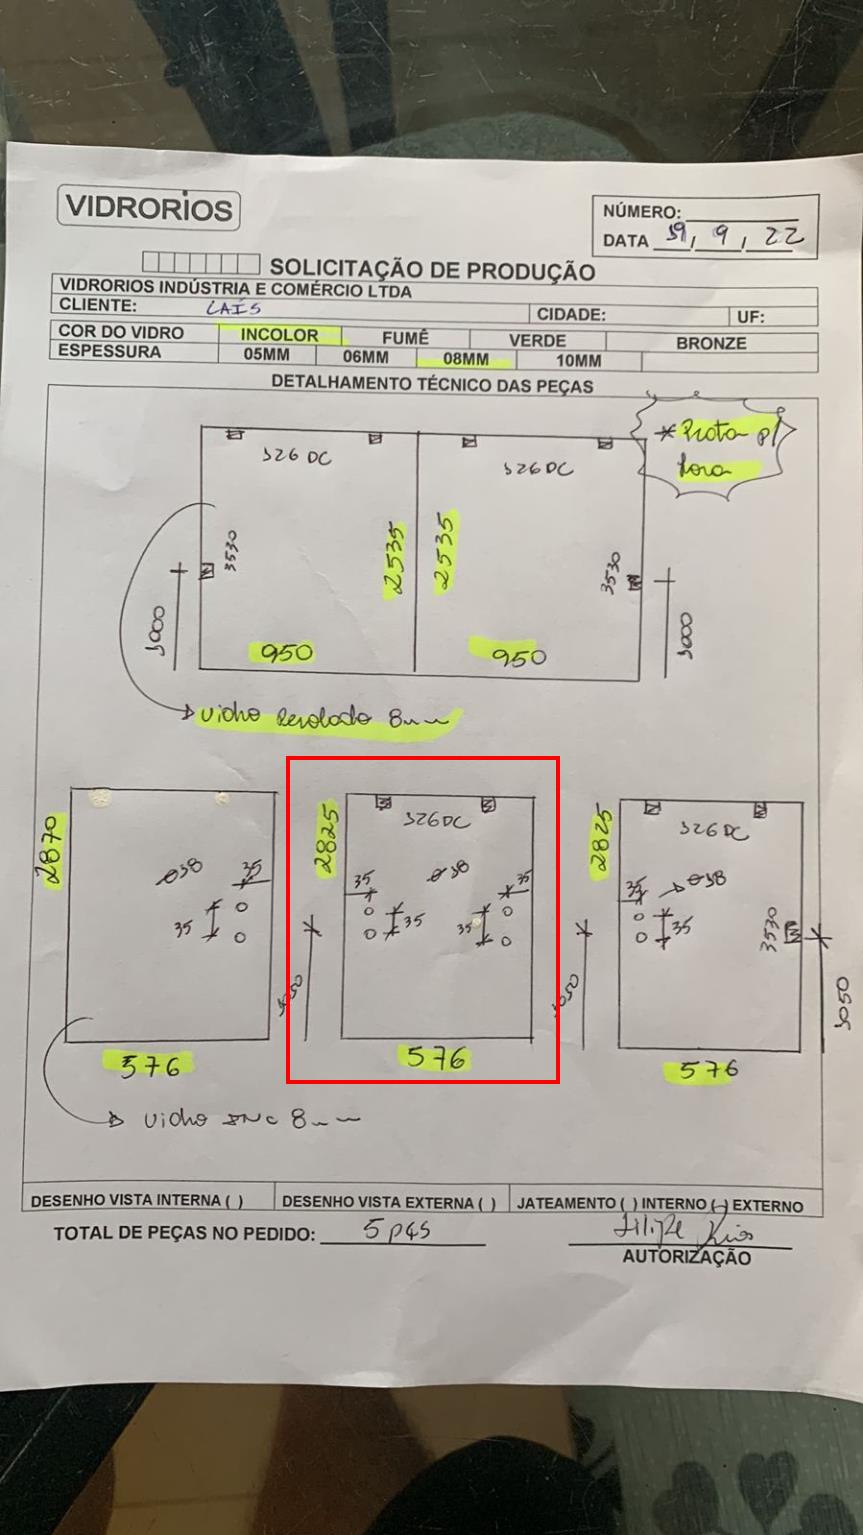 VIDRORIOS
NÚMERO:
DATA 19, 9, 22
SOLICITAÇÃO DE PRODUÇÃO
VIDRORIOS INDÚSTRIA E COMÉRCIO LTDA
CLIENTE: LAÍS CIDADE: UF:
COR DO VIDRO INCOLOR FUMÊ VERDE BRONZE
ESPESSURA 05MM 06MM 08MM 10MM
DETALHAMENTO TÉCNICO DAS PEÇAS
* Porta p/
fora
1326 DC 1326 DC
3530 2535 2535 3530
1000 1000
950 950
vidro serolado 8mm
2870 2825 2825
326DC 326DC
Ø18 35 35 Ø18 35 35 Ø18
35 35 35 35 3530
1050 1050 1050
576 576 576
vidro INC 8mm
DESENHO VISTA INTERNA ( ) DESENHO VISTA EXTERNA ( ) JATEAMENTO ( ) INTERNO (-) EXTERNO
TOTAL DE PEÇAS NO PEDIDO: 5 pçs
Filipe Rios
AUTORIZAÇÃO